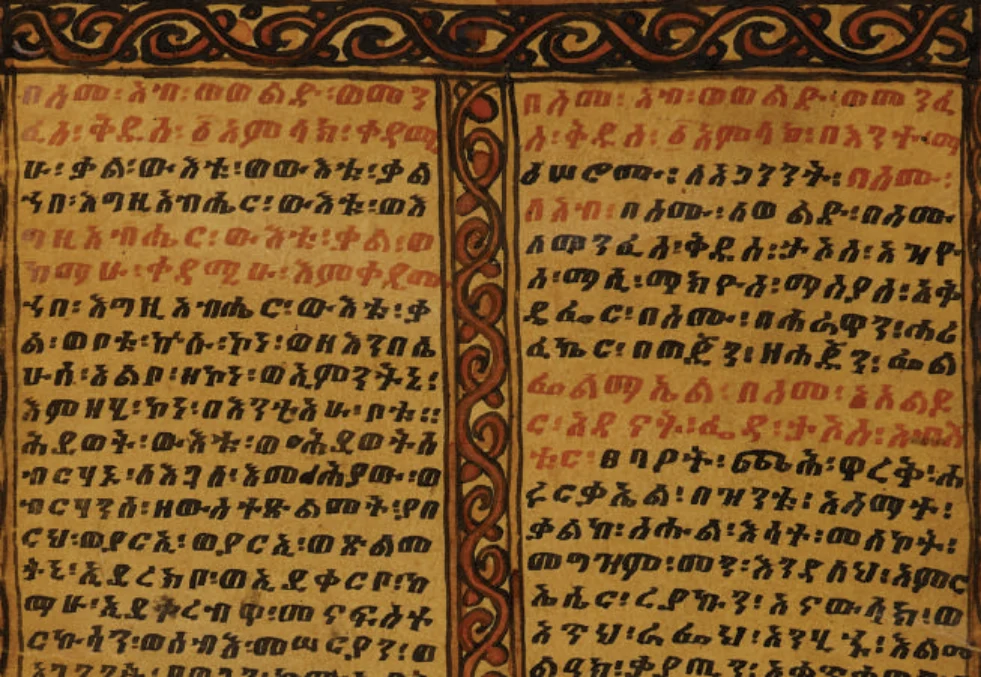 በስመ፡አብ፡ወወልድ፡ወመን
ፈስ፡ቅዱስ፡፩አምላክ፡ቀዳማ
ሁ፡ቃል፡ውእቱ፡ወውእቱ፡ቃል
ኀበ፡እግዚአብሔር፡ውእቱ፡ወእ
ግዚአብሔር፡ውእቱ፡ቃል፡ወ
ከማሁ፡ቀዳሚሁ፡እምቀዲመ
ኀበ፡እግዚአብሔር፡ውእቱ፡ቃ
ል፡ወቦቱ፡ኵሉ፡ኮነ፡ወዘእንበሌ
ሁሰ፡አልቦ፡ዘኮነ፡ወኢምንትኒ፡
እምዘሂ፡ኮነ፡በእንቲአሁ፡ቦቱ፡፡
ሕይወት፡ውእቱ፡ወሕይወትሰ
ብርሃኑ፡ለእጓለ፡እመሕያው፡ወ
ብርሃንሰ፡ዘውስተጽልመት፡ያበ
ርህ፡ወያርኢ፡ወያርኢ፡ወጽልመ
ትኒ፡ኢይረክቦ፡ወኢይቀርቦ፡ከ
ማሁ፡ኢይቅረብዋ፡መናፍስት
ርኩሳን፡ወሰብእ፡መሠርያን፡ወ
በስመ፡አብ፡ወወልድ፡ወመንፈ
ስ፡ቅዱስ፡፩አምላክ፡በእንተ፡ማ
ዕሠሮሙ፡ለአጋንንት፡በስሙ፡
ለአብ፡በስሙ፡ለወልድ፡በስሙ
ለመንፈስ፡ቅዱስ፡ታኦስ፡አዝዮ
ስ፡ማሲ፡ማክዮስ፡ማስያስ፡አቅ
ዴፌር፡በስሙ፡በሐራዋን፡ሐሪ
ፈኬር፡በጠጅን፡ዘሐጅን፡ፌል
ፌልማኤል፡በስመ፡
ር፡አዶናት፡ፌዳ፡ታኦስ፡
ፀባዖት፡
ቃኤል፡በዝንቱ፡አስማት፡
ቃልከ፡ለሐል፡እሳት፡መለኮት፡
መግዝም፡መን፡እንዳለህ፡አምር